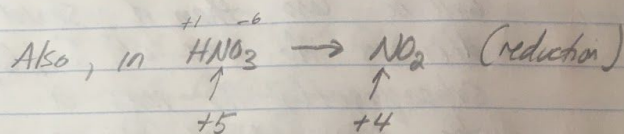 +1 -6
Also, in HNO₃ → NO₂ (reduction)
↑ ↑
+5 +4